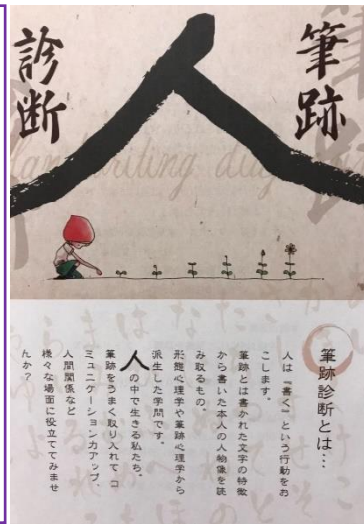 筆跡
診断
人
Handwriting diag
筆跡診断とは…
人は『書く』という行動をお
こします。
筆跡とは書かれた文字の特徴
から書いた本人の人物像を読
み取るもの。
形態心理学や筆跡心理学から
派生した学問です。
人の中で生きる私たち。
筆跡をうまく取り入れて、コ
ミュニケーション力アップ、
人間関係など
様々な場面に役立ててみませ
んか？